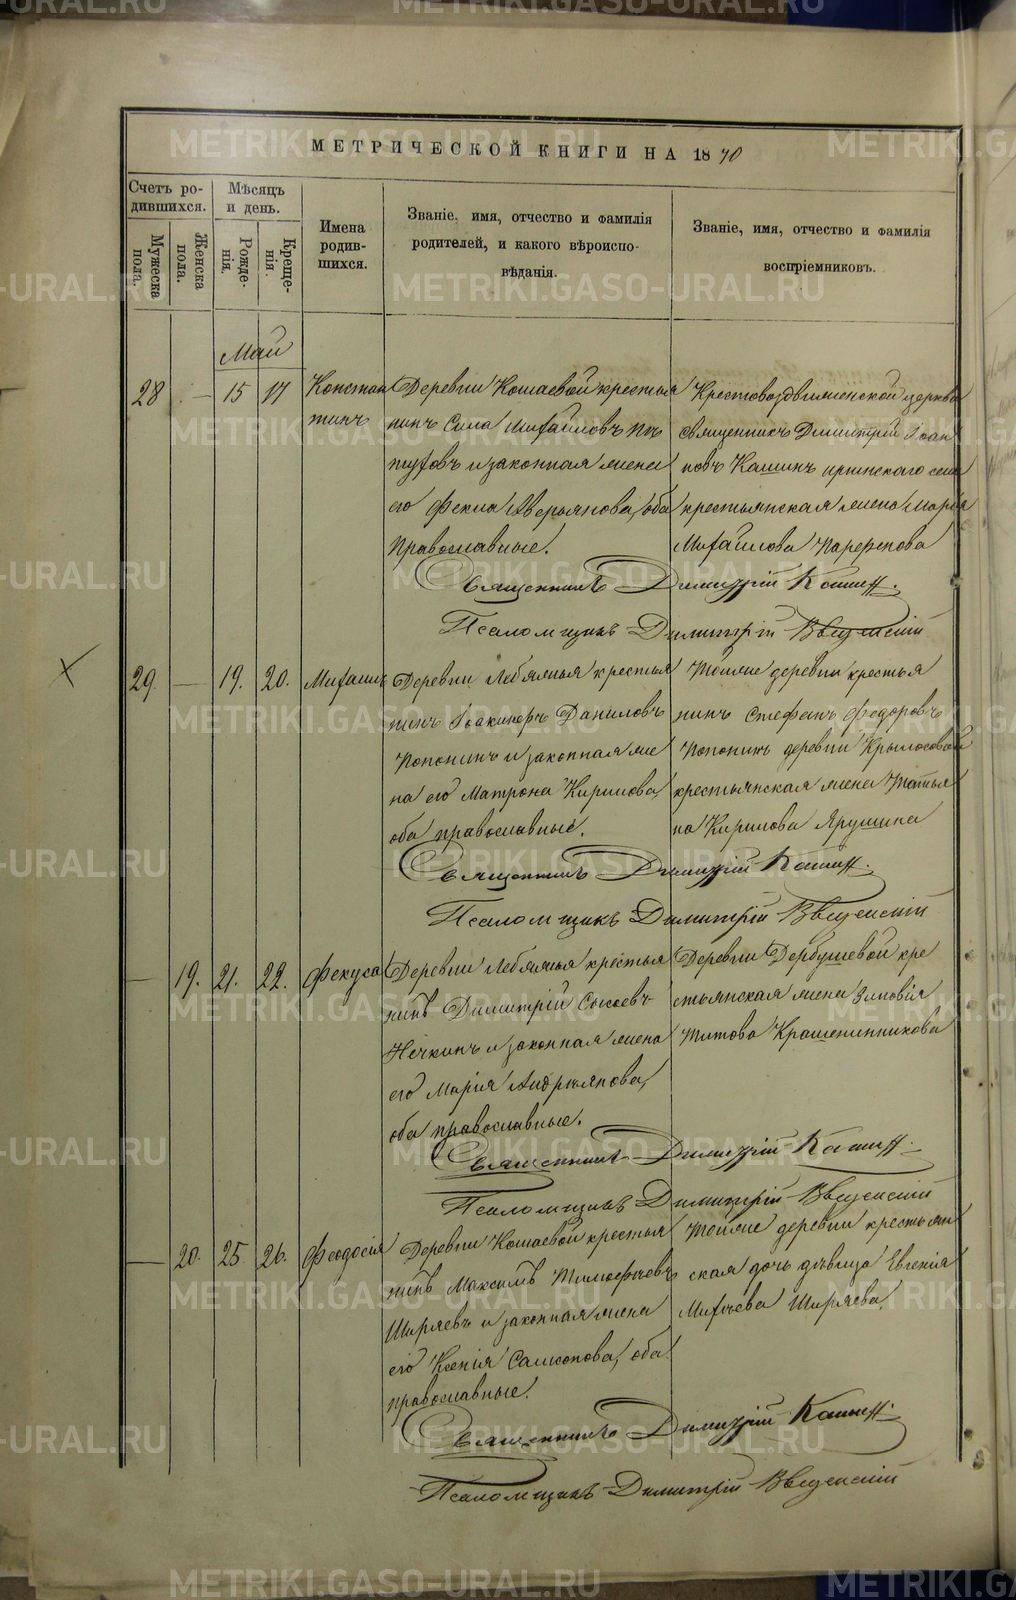 МЕТРИЧЕСКОЙ КНИГИ НА 1870
Счетъ ро-
дившихся.
Мужеска
пола.
Женска
пола.
Мѣсяцъ
и день.
Рожде-
нія.
Креще-
нія.
Имена
родив-
шихся.
Званіе, имя, отчество и фамилія
родителей, и какого вѣроиспо-
вѣданія.
Званіе, имя, отчество и фамилія
воспріемниковъ.
Май
28 — 15 17
Констан
тинъ
Деревни Кошаевой крестья
нинъ Сила Михайловъ
и законная жена
его Фекла Аверьянова, оба
православные.
Крестовоздвиженской церкви
священникъ Димитрій Іоан
новъ Кашинъ села
крестьянская жена Марія
Михайлова
Священникъ Димитрій Кашинъ.
Псаломщикъ Димитрій Введенскій
29. — 19. 20.
Михаилъ
Деревни Лебяжья крестья
нинъ Іоакимъ Даниловъ
Попонинъ и законная же
на его Матрона Кирилова,
оба православные.
Тойже деревни крестья
нинъ Стефанъ Федоровъ
Попонинъ деревни Крылосовой
крестьянская жена Татья
на Кирилова Ярушина
Священникъ Димитрій Кашинъ.
Псаломщикъ Димитрій Введенскій
— 19. 21. 22.
Фекуса
Деревни Лебяжья крестья
нинъ Димитрій Сысоевъ
Нечкинъ и законная жена
его Марія Андреянова,
оба православные.
Деревни Дербушевой кре
стьянская жена Зиновія
Титова Крашенинникова
Священникъ Димитрій Кашинъ.
Псаломщикъ Димитрій Введенскій
— 20. 25 26.
Феодосія
Деревни Кошаевой крестья
нинъ Максимъ Тимофеевъ
Ширяевъ и законная жена
его Ксенія Самсонова, оба
православные.
Тойже деревни крестьян
ская дочь дѣвица Евгенія
Михеева Ширяева
Священникъ Димитрій Кашинъ.
Псаломщикъ Димитрій Введенскій
METRIKI.GASO-URAL.RU